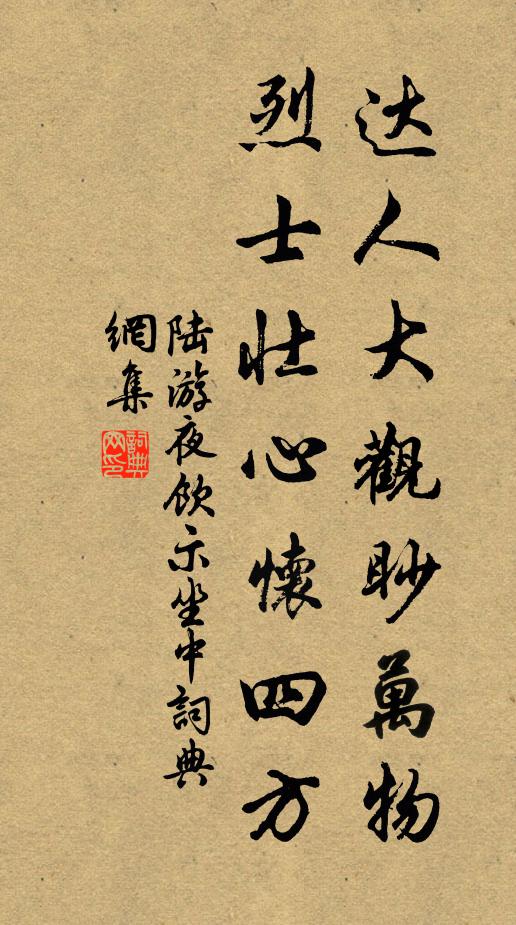 达人大觀眇萬物
烈士壯心懷四方
陆游夜飲示坐中詞典
網集
詞典
网印